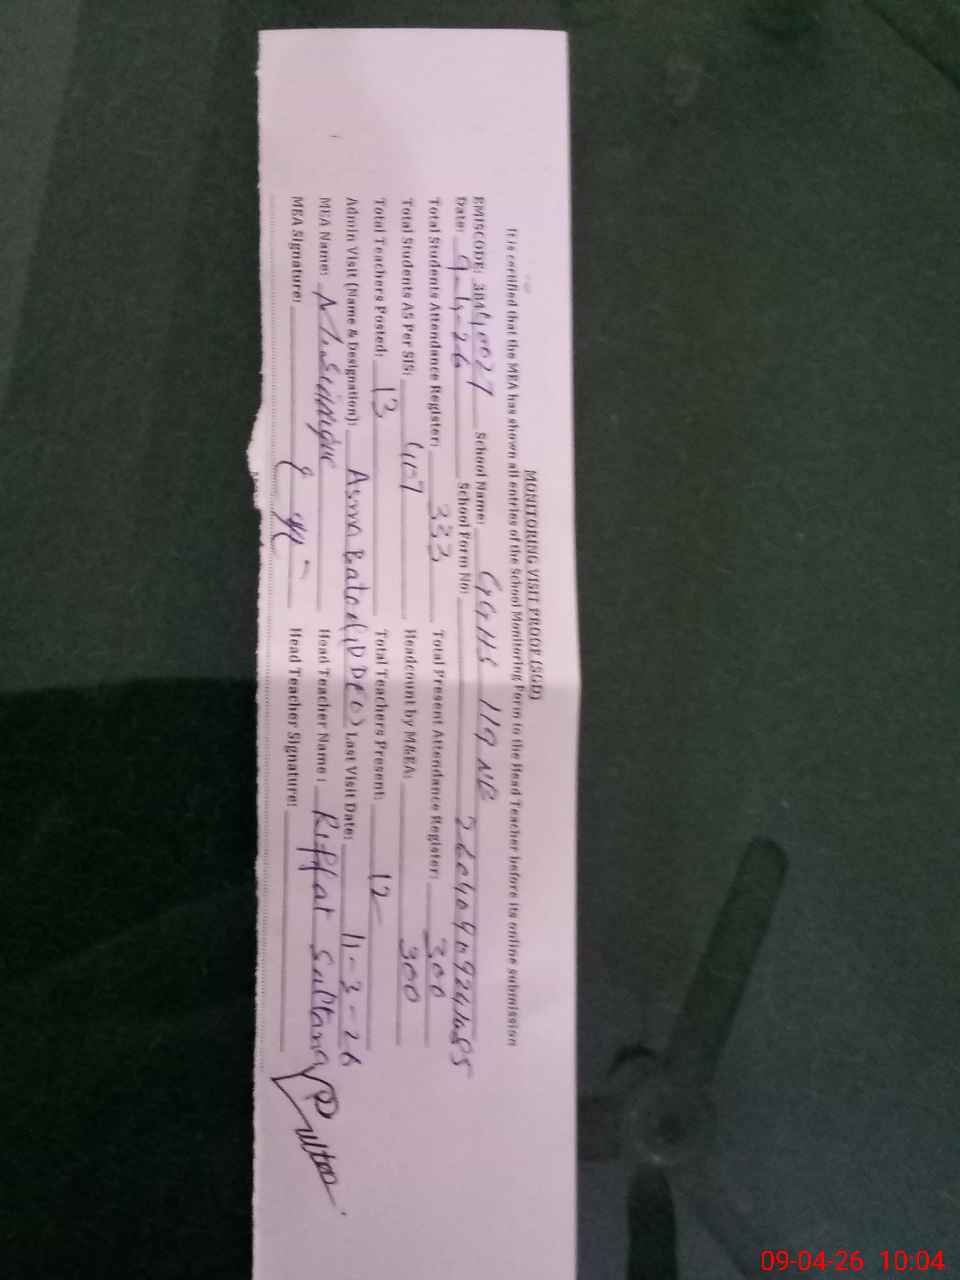 MONITORING VISIT PROOF (SGD)
It is certified that the MEA has shown all entries of the School Monitoring Form to the Head Teacher before its online submission
EMISCODE: 38440027 School Name: GGHS 119 NB
Date: 9-4-26 School Form No:
Total Students Attendance Register: 333 Total Present Attendance Register: 300
Total Students AS Per SIS: 407 Headcount by M&EA: 300
Total Teachers Posted: 13 Total Teachers Present: 12
Admin Visit (Name & Designation): Asma Batool (DDEO) Last Visit Date: 11-3-26
MEA Name: Head Teacher Name: Riffat Sultana
MEA Signature: Head Teacher Signature:
09-04-26 10:04